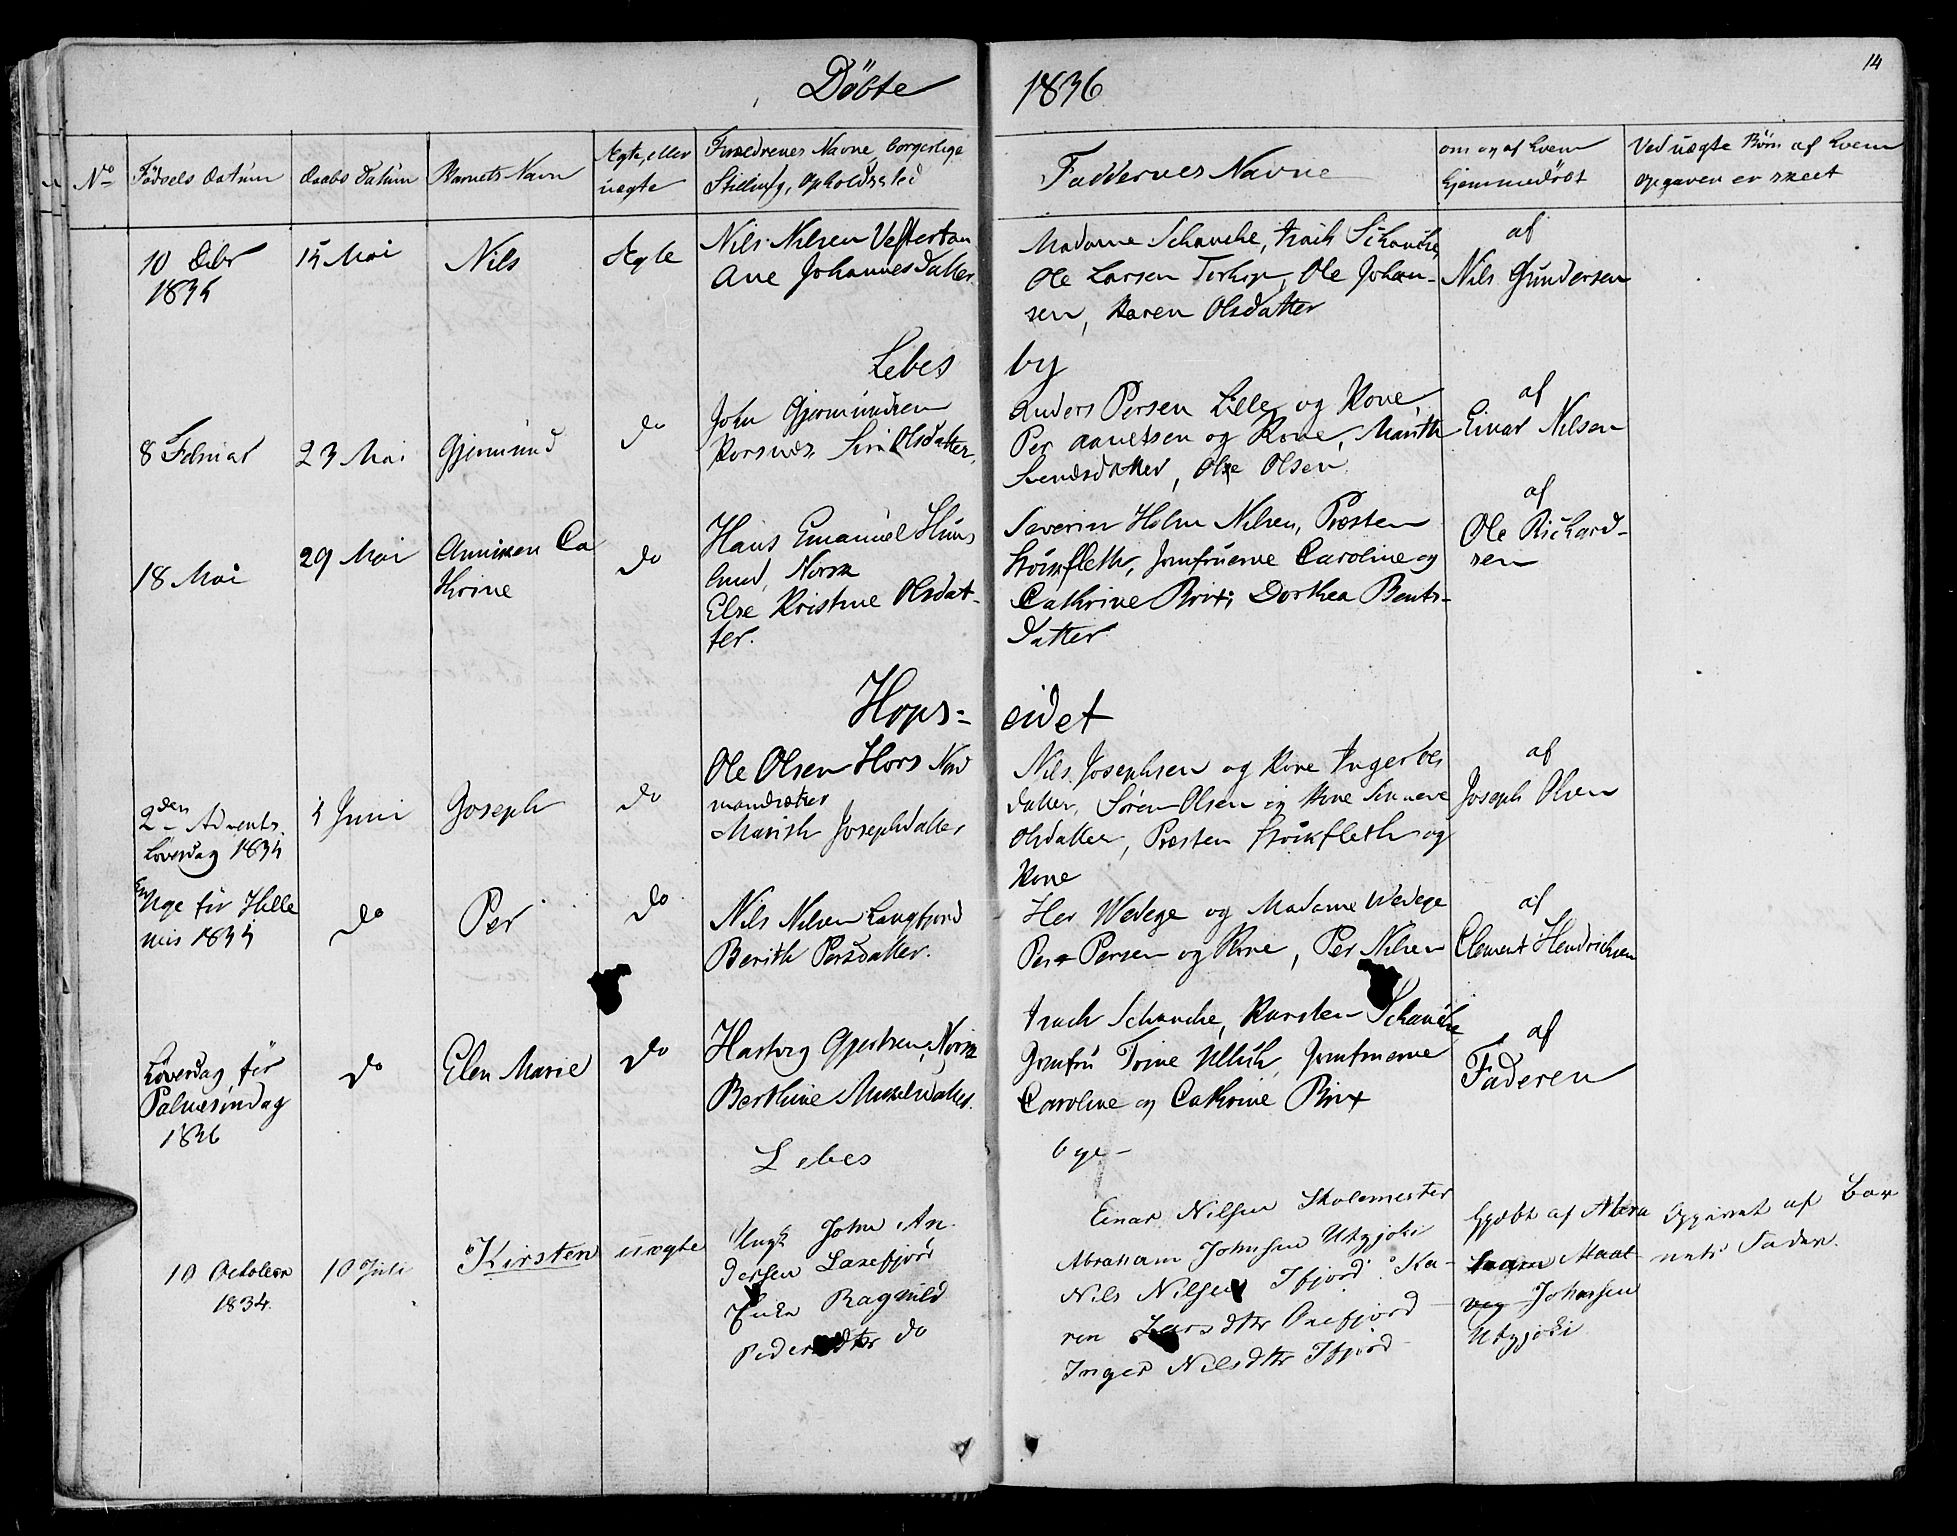 14
Döbte 1836
No
Fødsels Datum
Daabs Datum
Barnets Navn
Ægte, eller
uægte
Forældrenes Navne, borgerlige
Stilling, Opholdssted
Faddernes Navne
om og af hvem
hjemmedöbt
Ved uægte Börn af hvem
Opgaven er skeet
10 Debr
1835
15 Mai
Nils
Ægte
Nils Nilsen Vestertan
Ane Johannesdatter
Madame Schanche, Isach Schanche,
Ole Larsen Torhop, Ole Johan-
sen, Karen Olsdatter
af
Nils Gundersen
Lebes by
8 Febuar
23 Mai
Gjermund
do
John Gjermundsen
Korsnæs Siri Olsdatter,
Anders Persen Lille og Kone,
Per og Kone, Marith
Svendsdatter, Ole Olsen
af
Einar Nilsen
18 Mai
29 Mai
Anniken Ca
thrine
do
Hans Emanuel Huus
lund, Norsk
Else Kristine Olsdat-
ter.
Severin Holm Nilsen, Præsten
Stöckfleth, Jomfruerne Caroline og
Cathrine Brix, Dorthea Bents-
datter
af
Ole Richard-
sen
Hops- eidet
2den Advents
Löverdag 1835
4 Juni
Joseph
do
Ole Olsen Hors Nord
mandsæter
Marith Josephdatter
Nils Josephsen og Kone Inger
datter, Sören Olsen og Kone
Olsdatter, Præsten Stöckfleth og
Kone
af
Joseph Olsen
En Uge för Helle
mis 1835
do
Per
do
Nils Nilsen Langfjord
Berith Persdatter.
Her Wedege og Madame Wedege
Per Persen og Kone, Per Nilsen
af
Clement Hendrichsen
Löverdag för
Palmesöndag
1836
do
Elen Marie
do
Hartvig Gjertsen, Norsk
Berthine Mikkelsdatter.
Isach Schanche, Karsten Schanche,
Jomfru Trine Ulich, Jomfruerne
Caroline og Cathrine Brix
af
Faderen
Lebes bye-
10 October
1834.
10 Juli
Kirsten
uægte
Ungk John An-
dersen Laxefjord
Enke Ragnild
Pedersdtr do
Einar Nilsen Skolemester
Abraham Johnsen Utsjoki
Nils Nilsen Ifjord. Ka-
ren Larsdtr Onefjord
Inger Nilsdtr Ifjord
Hjdöbt af Abra
ham
Johnsen
Utsjoki
Opgivet af Bar
nets Fader.